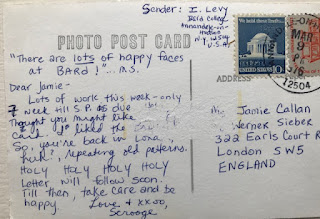 Sender: I. Levy
Bard College
Annandale-on-
Hudson
N.Y. 12504
U.S.A.
PHOTO POST CARD
"There are lots of happy faces
at BARD!"
Dear Jamie-
Lots of work this week-only
7 week till S.P. is due
Thought you might like
card. liked the
So, you're back in Lona,
huh?, repeating old patterns.
HOLY HOLY HOLY HOLY
Letter will follow soon.
Till then, take care and be
happy. Love & xxoo,
Scrooge
ADDRESS
10
MAR
9
PM
1976
12504
Jamie Callan
Werner Sieber
322 Earls Court R
London SW5
ENGLAND